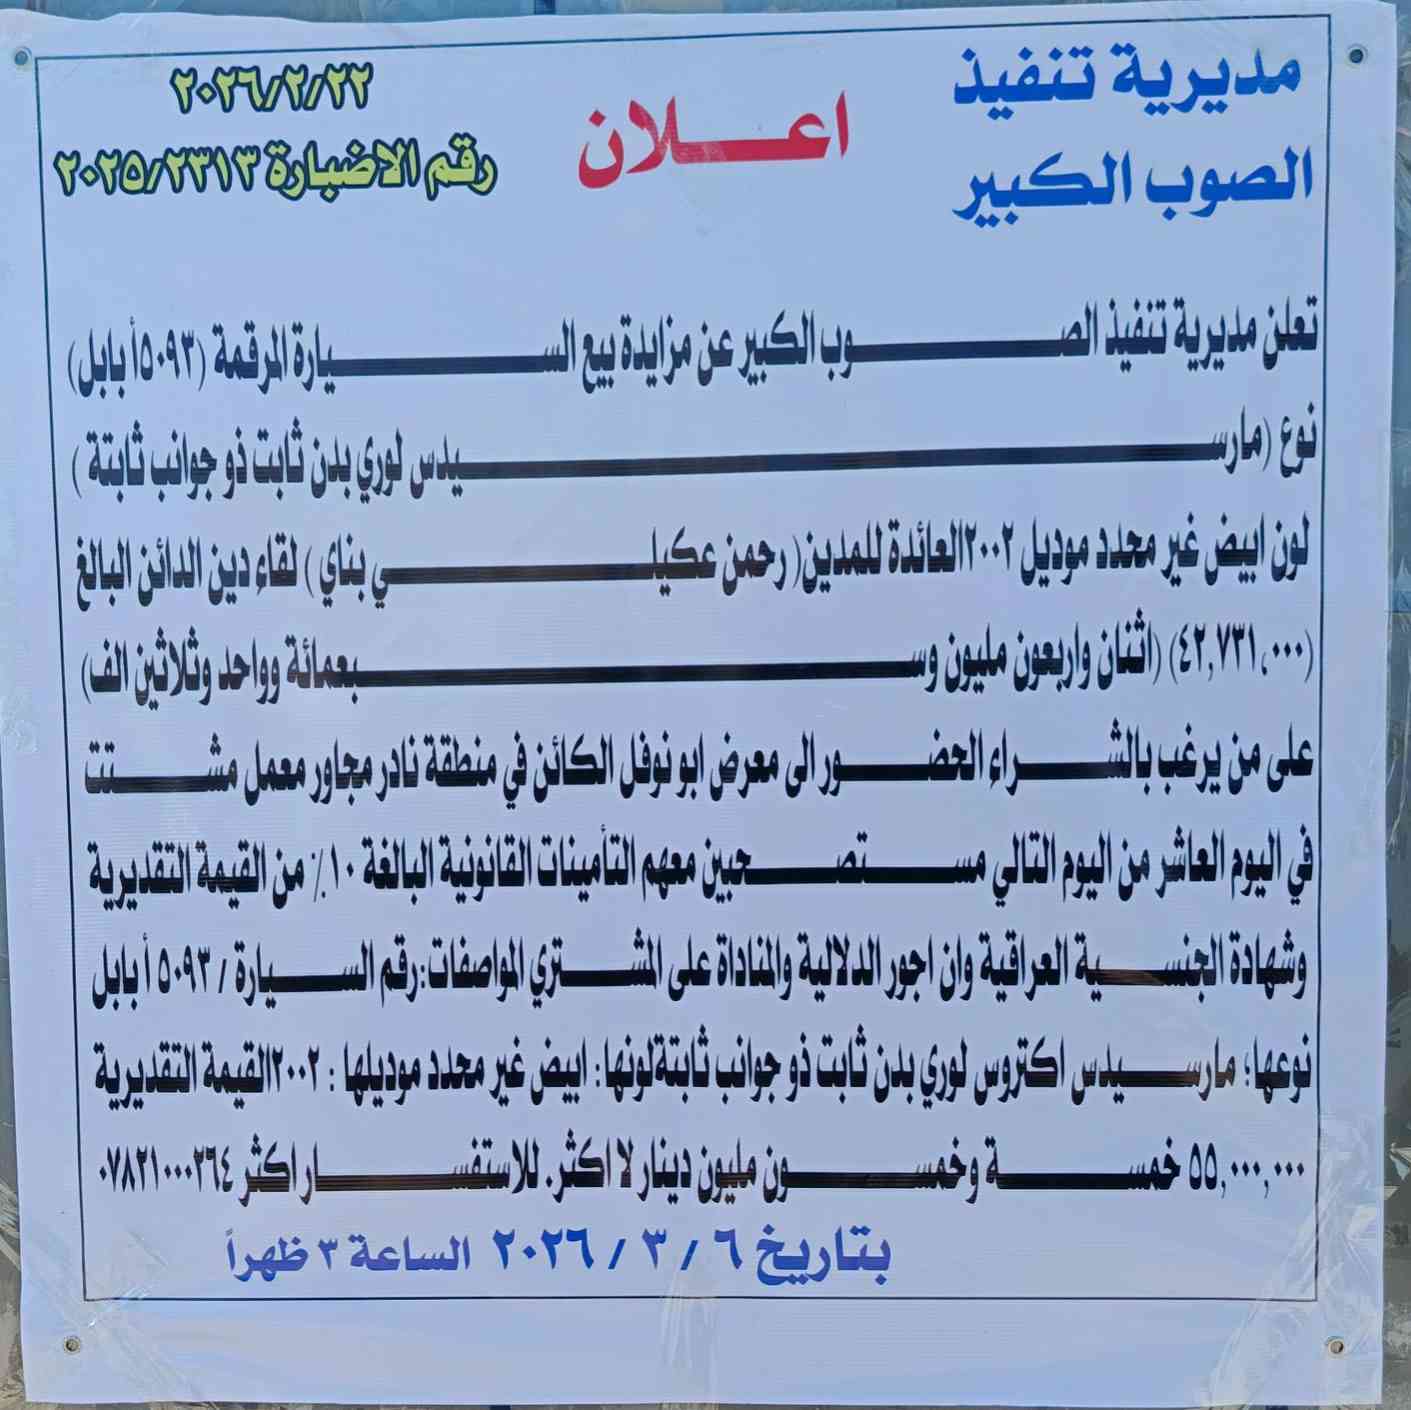 مديرية تنفيذ
الصوب الكبير
اعلان
٢٠٢٦/٢/٢٢
رقم الاضبارة ٢٠٢٥/٢٣١٣
تعلن مديرية تنفيذ الصوب الكبير عن مزايدة بيع السيارة المرقمة (٥٠٩٣أ بابل)
نوع (مارسيدس لوري بدن ثابت ذو جوانب ثابتة )
لون ابيض غير محدد موديل ٢٠٠٢العائدة للمدين( رحمن عكيلي بناي ) لقاء دين الدائن البالغ
(٤٢,٧٣١,٠٠٠) (اثنان واربعون مليون وسبعمائة وواحد وثلاثين الف)
على من يرغب بالشراء الحضور الى معرض ابو نوفل الكائن في منطقة نادر مجاور معمل مشتت
في اليوم العاشر من اليوم التالي مستصحبين معهم التأمينات القانونية البالغة ١٠٪ من القيمة التقديرية
وشهادة الجنسية العراقية وان اجور الدلالية والمناداة على المشتري المواصفات:رقم السيارة / ٥٠٩٣ أ بابل
نوعها؛ مارسيدس اكتروس لوري بدن ثابت ذو جوانب ثابتةلونها: ابيض غير محدد موديلها : ٢٠٠٢القيمة التقديرية
٥٥,٠٠٠,٠٠٠ خمسة وخمسون مليون دينار لا اكثر. للاستفسار اكثر ٠٧٨٢١٠٠٠٢٦٤
بتاريخ ٦ / ٣ / ٢٠٢٦ الساعة ٣ ظهراً